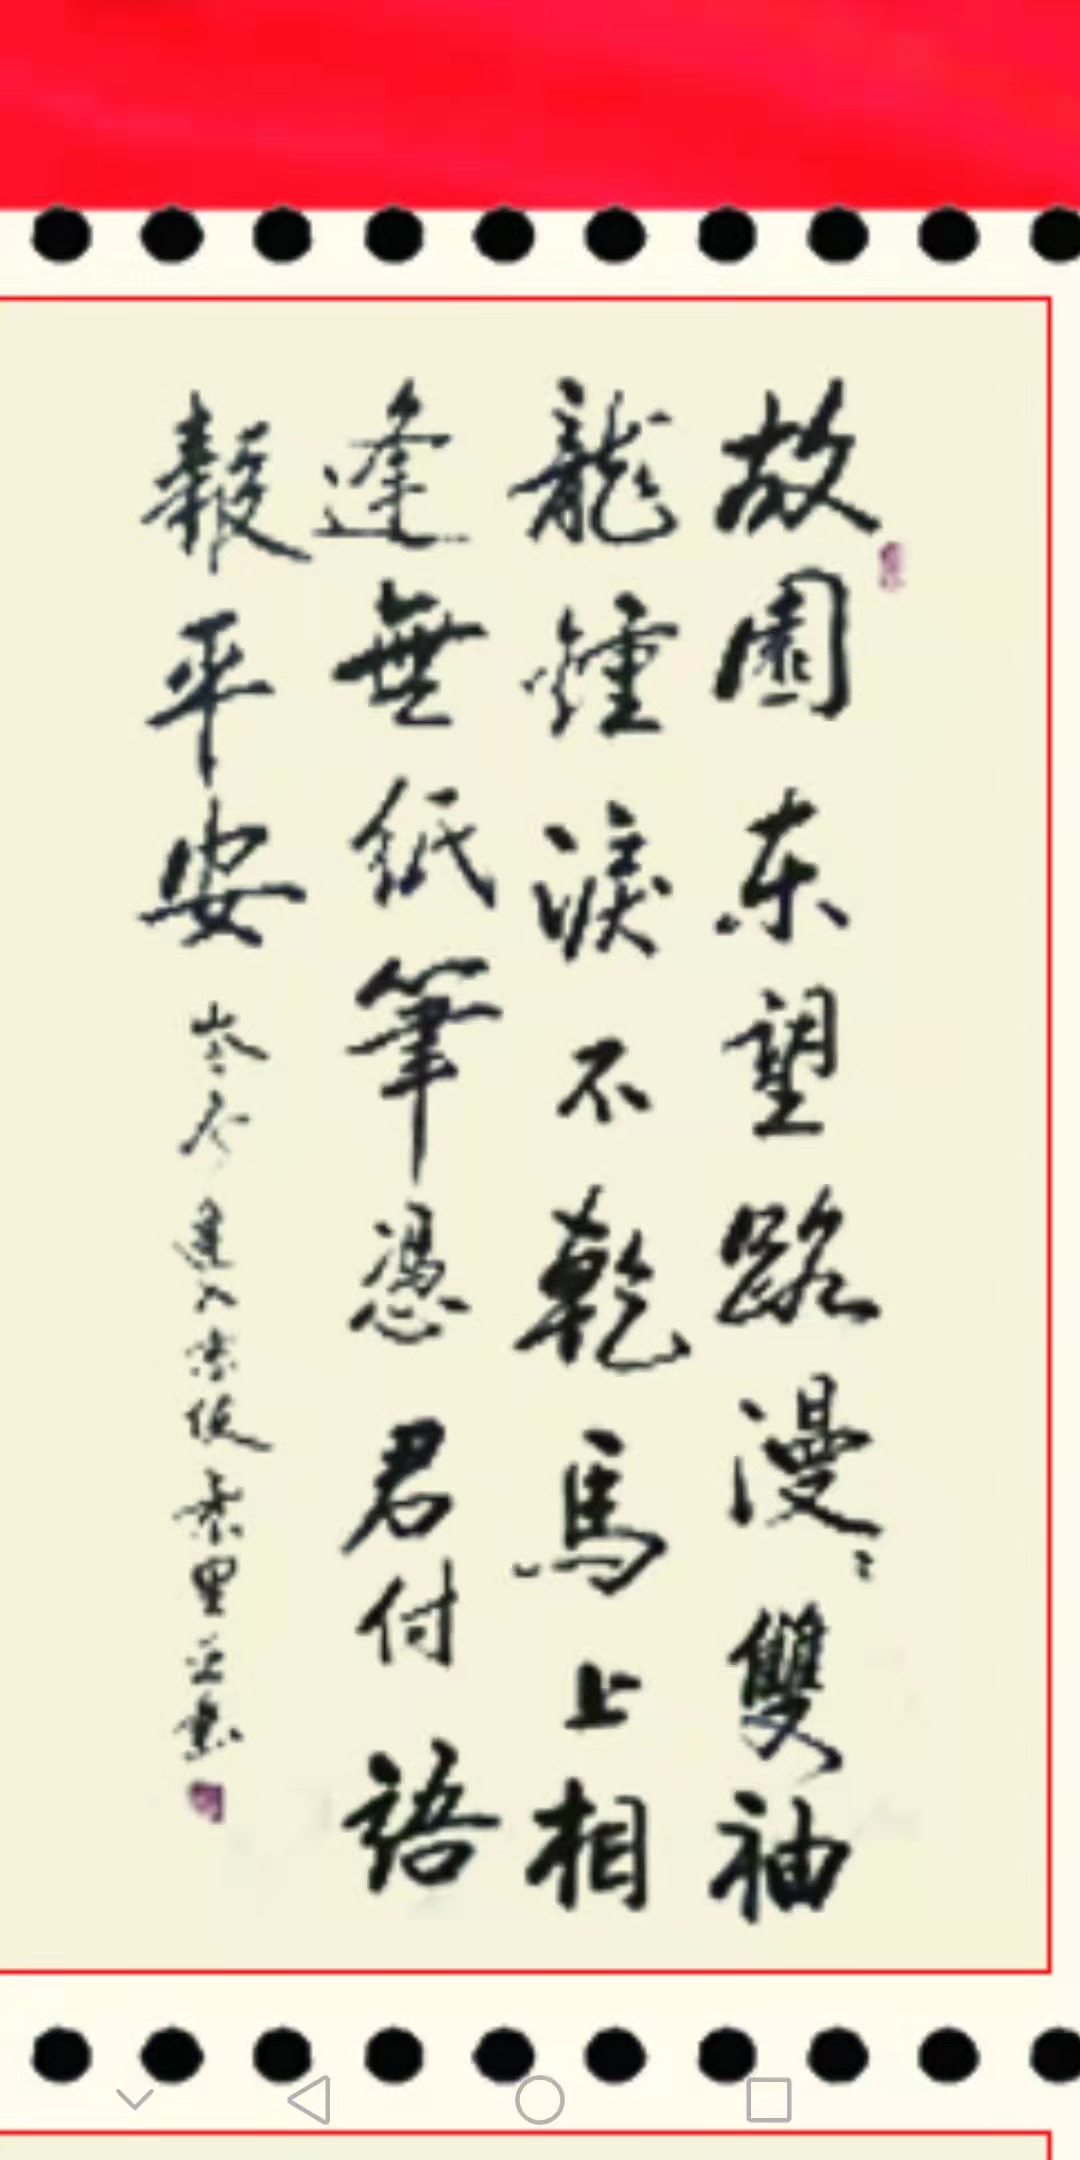 故園东望路漫〻雙袖
龍鍾淚不乾馬上相
逢無紙筆憑君付語
報平安 岑參逢入京使